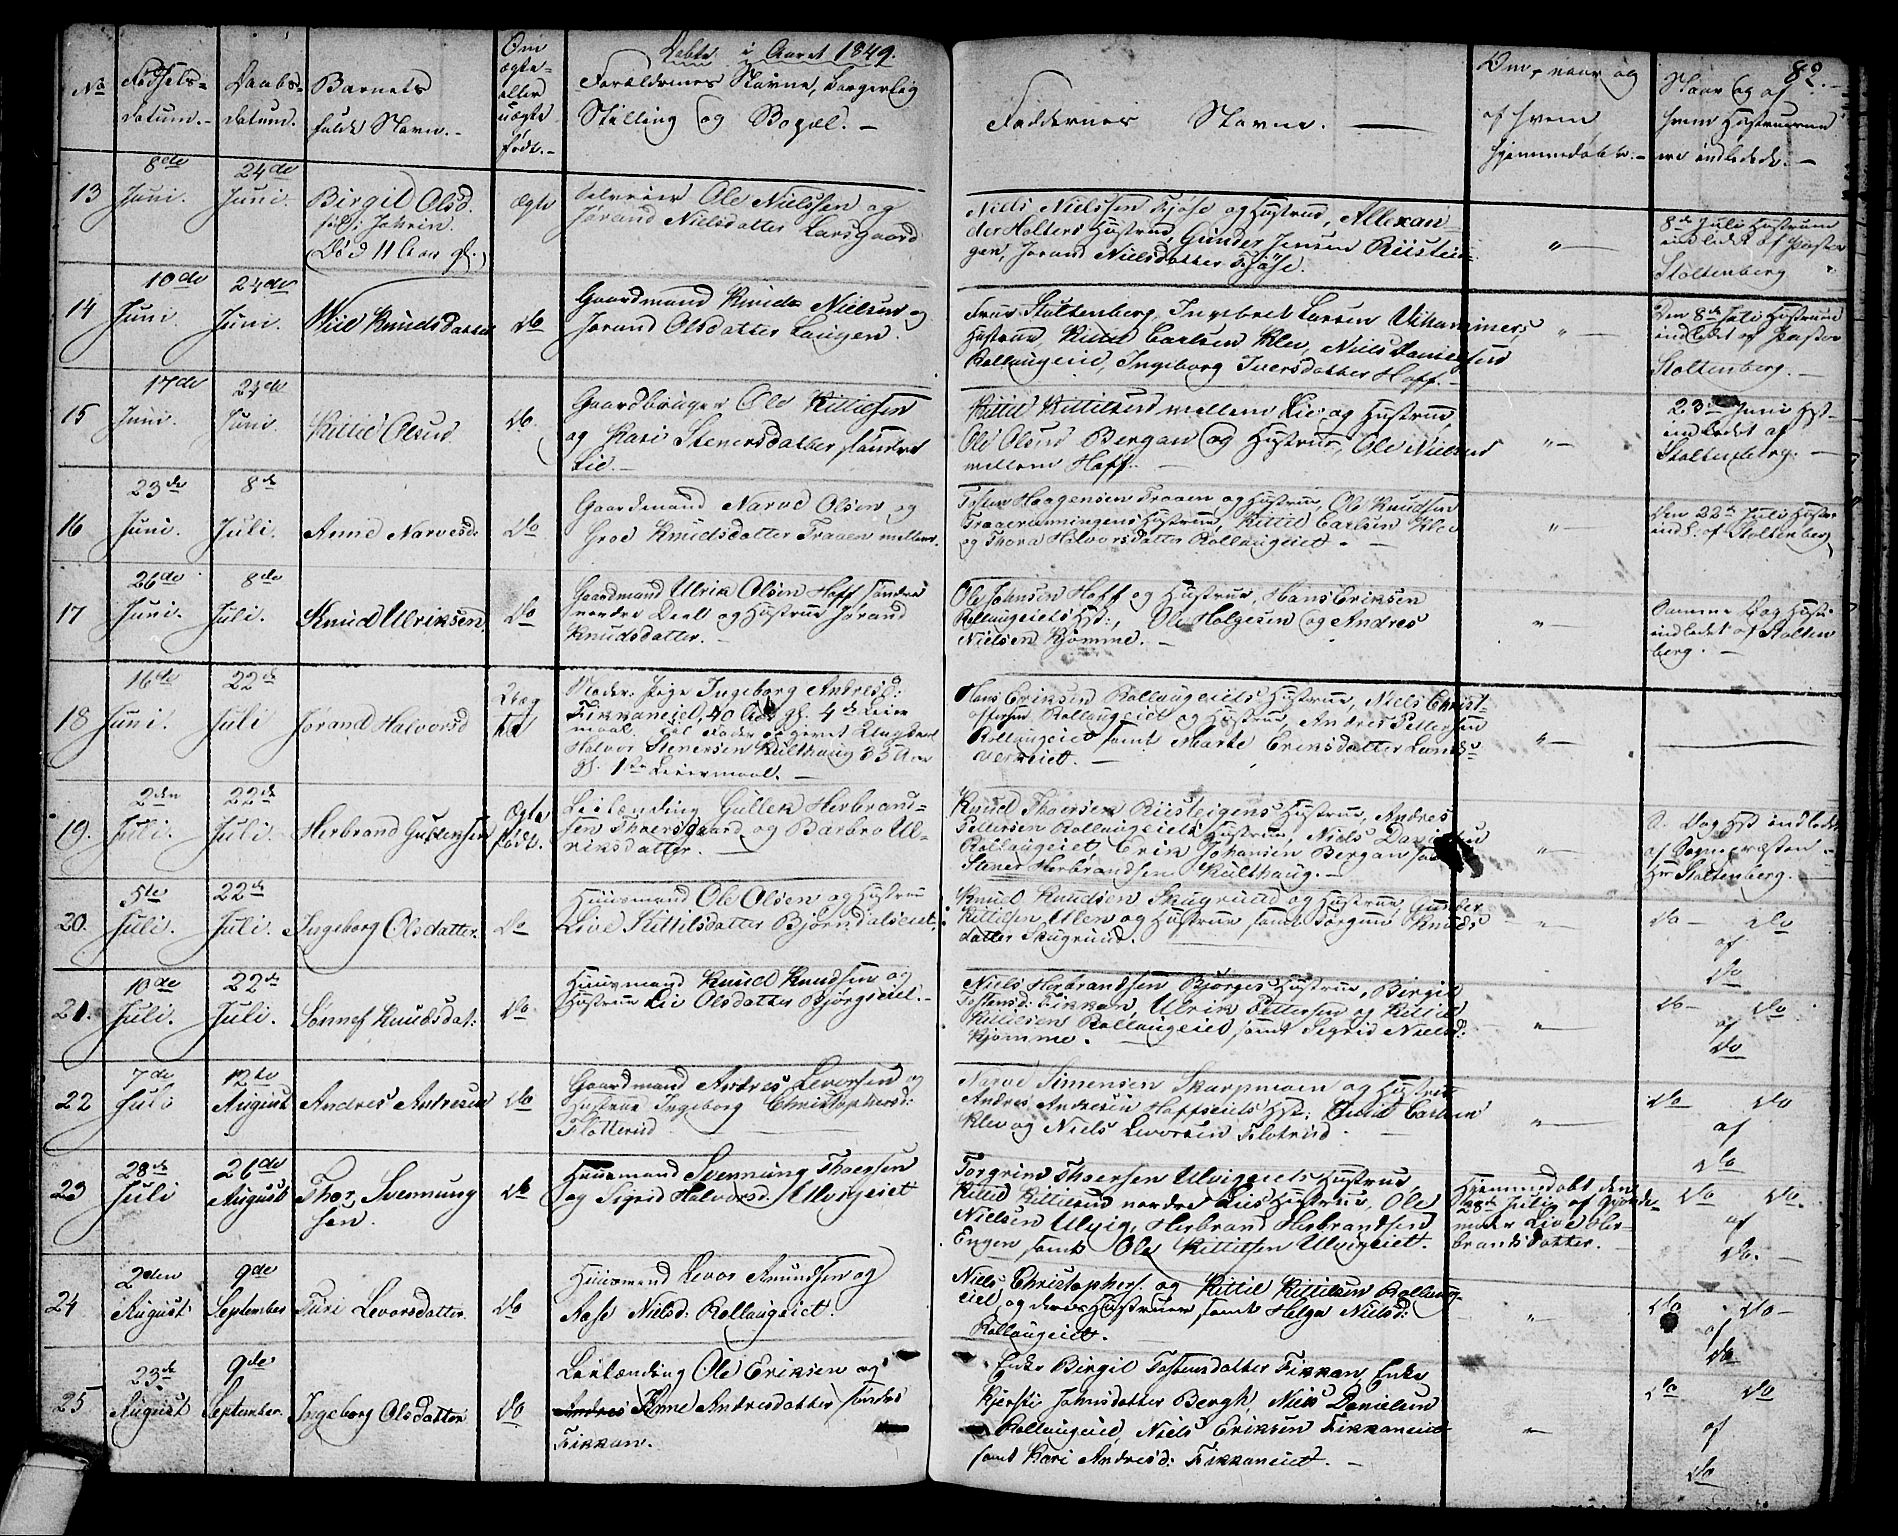 Døbte i Aaret 1849.
82.
No
Fødsels-
datum.
Daabs-
datum.
Barnets
fulde Navn.
Om
ægte
eller
uægte
født.
Forældrenes Navne, borgerlig
Stilling og Bopæl.
Faddernes Navne.
Om, naar og
af hvem
hjemmedøbt.
Naar og af
hvem Hustruerne
ere indledede.
13
8de
Juni.
24de
Juni.
Birgit Olsd.
(Død 11 Aar gl.)
Ægte
Selveier Ole Nielssen og
Jørand Nielsdatter Larsgaard
Niels Nielssen Kjøse og Hustrue, Allexan
der Holters Hustrue, Gunder Jensen Rustei-
gen, Jørand Nielsdatter Kjøse.
8de Juli Hustruen
indledet af Pastor
Stoltenberg
14
10de
Juni.
24de
Juni.
Knudsdatter
do
Gaardmand Knud Nielsen og
Jørand Olsdatter Laugen.
Frue Stoltenberg, Ingebret Larsen
Hustrue, Kittil Carlsen Klev, Niels Danielsen
Rollaugeiet, Ingeborg Iversdatter Hoff.
Den 8de Juli Hustruen
indledet af Pastor
Stoltenberg.
15
17de
Juni.
24de
Juni.
Kittil Olsen
do.
Gaardbruger Ole Kittilsen
og Kari Stenersdatter søndre
Lie.
Kittil Kittilsen mellem Lie og Hustrue,
Ole Olsen Bergan og Hustrue, Ole Nielsen
mellem Hoff.
23de Juni Hst.
indledet af
Stoltenberg.
16
23de
Juni.
8de
Juli.
Anne Narvesd.
do
Gaardmand Narve Olsen og
Groe Knudsdatter Traaen mellem.
Tosten Haagensen Traaen og Hustrue, Ole Knudsen
Hustrue, Kittil Carlsen Klev
og Thora Halvorsdatter Rollaugeiet.
Den 22de Juli Hustr.
indl. af Stoltenberg
17
26de
Juni.
8de
Juli.
Knud Ulriksen,
do
Gaardmand Ulrik Olsen Hoff søndre
nordre Deel og Hustrue Jørand
Knudsdatter.
Ole Johnsen Hoff og Hustrue, Hans Eriksen
Rollaugeiets Hst., Ole Holgesen og Andres
Nielsen Kjømme.
Samme Dag Hustr.
indledet af Stolten
berg.
18
16de
Juni.
22de
Juli
Jørand Halvorsd
Uæg
te
Moder: Pige Ingeborg Andresd:
Fikkaneiet, 40 Aar gl. 4de Leier
maal. Til Fader opgivet Ungkarl
Halvor Stenersen Kulthaug 33 Aar
gl. 1ste Leiermaal.
Hans Eriksen Rollaugeiets Hustrue, Niels Christ-
ofersen Rollaugeiet og Hustrue, Andres Pettersen
Rollaugeiet samt Marte Eriksdatter Lands-
verkeiet.
19.
2den
Juli.
22de
Juli.
Herbrand Gullensen
Ægte
født.
Leilænding Gullek Herbrand-
sen Thorsgaard og Barbro Ul-
riksdatter.
Knud Thorsen Rusteigens Hustrue, Andres
Pettersen Rollaugeiets Hustrue, Niels Danielsen
Rollaugeiet Erik Johansen Bergan samt
Stener Herbrandsen Kulthaug.
S. Dag Hst indledet
af Sognepræsten
Hr Stoltenberg.
20.
5te
Juli.
22de
Juli.
Ingeborg Olsdatter.
do
Huusmand Ole Olsen og Hustrue
Live Kittilsdatter Bjørndalseiet.
Knud Knudsen Skugrud og Hustrue Gunder
Kittilsen Ulen og Hustrue, samt Jørgine Knuds
datter Skugrud.
do do
af
do
21.
10de
Juli.
22de
Juli.
Sønnef Knudsdat:
do
Huusmand Knud Knudsen og
Hustrue Liv Olsdatter Bjørgseiet.
Niels Herbrandsen Bjørges Hustrue, Birgit
Tostensd: Fikkan, Ulrik Pettersen og Kittil
Kittilsen Rollaugeiet, samt Sigrid Nielsd:
Kjømme.
do do
af
do
22
7de
Juli
12te
August
Andres Andresen
do
Gaardmand Andres Levorsen og
Hustrue Ingeborg Christophersd:
Flotterud
Narve Simensen Skarpmoen og Hustrue
Andres Andresen Hoffseiets Hst: Knud Carlsen
Klev og Niels Levorsen Flotrud
do do
af
do
23
28de
Juli
26de
August
Thor Svennung
sen.
do
Huusmand Svennung Thorsen
og Sigrid Halvorsd. Ulvigeiet
Torgrim Thorsen Ulvigeiets Hustrue,
Kittil Kittilsen nordre Lies Hustrue, Ole
Nielsen Ulvig, Herbrand Herbrandsen
Engen samt Ole Kittilsen Ulvigeiet.
Hjemmedøbt den
28de Juli af Gjorde-
moder Live Her-
brandsdatter.
do do.
af
do.
24
2den
August
9de
September
Turi Levorsdatter.
do
Huusmand Levor Amundsen og
Aase Nielsd: Rollaugeiet
Niels Christophers. og Kittil Kittilsen Rollaug-
eiet og deres Hustruer samt Helge Nielsd:
Rollaugeiet.
do do
af
do
25
23de
August
9de
September.
Ingeborg Olsdatter
do
Leilænding Ole Eriksen og
Anne Andresdatter søndre
Fikkan.
Enke Birgit Tostensdatter Fikkan, Enke
Kjersti Johnsdatter Bergh, Niels Danielsen
Rollaugeiet, Niels Eriksen Fikkaneiet
samt Kari Andresd: Fikkaneiet.
do do
af
do